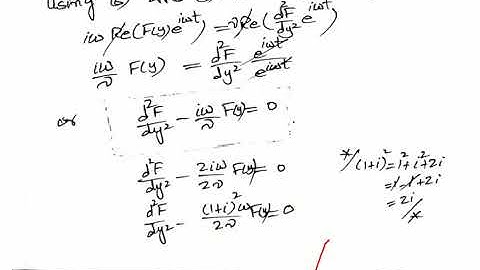 using
iω Re(F(y)e^{iωt}) = νRe(d²F/dy² e^{iωt})
iω/ν F(y) = d²F/dy² e^{iωt}/e^{iωt}
or d²F/dy² - iω/ν F(y) = 0
d²F/dy² - 2iω/2ν F(y) = 0
d²F/dy² - (1+i)²ω/2ν F(y) = 0
*/(1+i)² = 1² + i² + 2i
= 1 - 1 + 2i
= 2i
/*